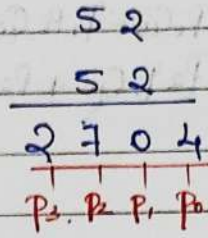 52
52
2704
P3. P2 P1 P0